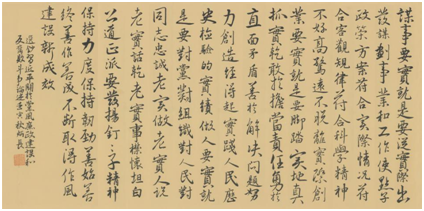 謀事要實就是要從實際出
發謀劃事業和工作使點子
政策方案符合實際情况符
合客觀規律符合科學精神
不好高騖遠不脱離實際創
業要實就是要脚踏實地真
抓實乾敢於擔當責任勇於
直面矛盾善於解决問題努
力創造經得起實踐人民歷
史檢驗的實績做人要實就
是要對黨對組織對人民對
同志忠誠老實做老實人説
老實話乾老實事襟懷坦白
公道正派要發揚釘釘子精神
保持力度保持韌勁善始善
終善作善成不斷取得作風
建設新成效